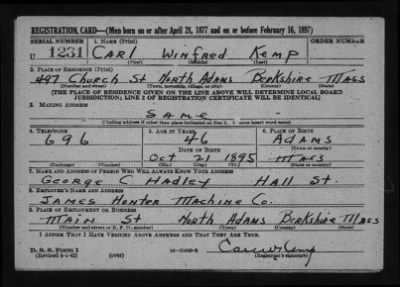 REGISTRATION CARD—(Men born on or after April 28, 1877 and on or before February 16, 1897)
SERIAL NUMBER 1. NAME (Print) ORDER NUMBER
U 1231 CARL WINFRED KEMP
(First) (Middle) (Last)
2. PLACE OF RESIDENCE (Print)
CHURCH ST NORTH ADAMS BERKSHIRE MASS
(Number and street) (Town, township, village, or city) (County) (State)
[THE PLACE OF RESIDENCE GIVEN ON THE LINE ABOVE WILL DETERMINE LOCAL BOARD
JURISDICTION; LINE 2 OF REGISTRATION CERTIFICATE WILL BE IDENTICAL]
3. MAILING ADDRESS
SAME
[Mailing address if other than place indicated on line 2. If same insert word same]
4. TELEPHONE 5. AGE IN YEARS 6. PLACE OF BIRTH
696 46 ADAMS
DATE OF BIRTH (Town or county)
OCT 21 1895 MASS
(Exchange) (Number) (Mo.) (Day) (Yr.) (State or country)
7. NAME AND ADDRESS OF PERSON WHO WILL ALWAYS KNOW YOUR ADDRESS
GEORGE C HADLEY HALL ST.
8. EMPLOYER'S NAME AND ADDRESS
JAMES HUNTER MACHINE CO.
9. PLACE OF EMPLOYMENT OR BUSINESS
MAIN ST NORTH ADAMS BERKSHIRE MASS
(Number and street or R. F. D. number) (Town) (County) (State)
I AFFIRM THAT I HAVE VERIFIED ABOVE ANSWERS AND THAT THEY ARE TRUE.
D. S. S. Form 1
(Revised 4-1-42) (over) (Registrant's signature)